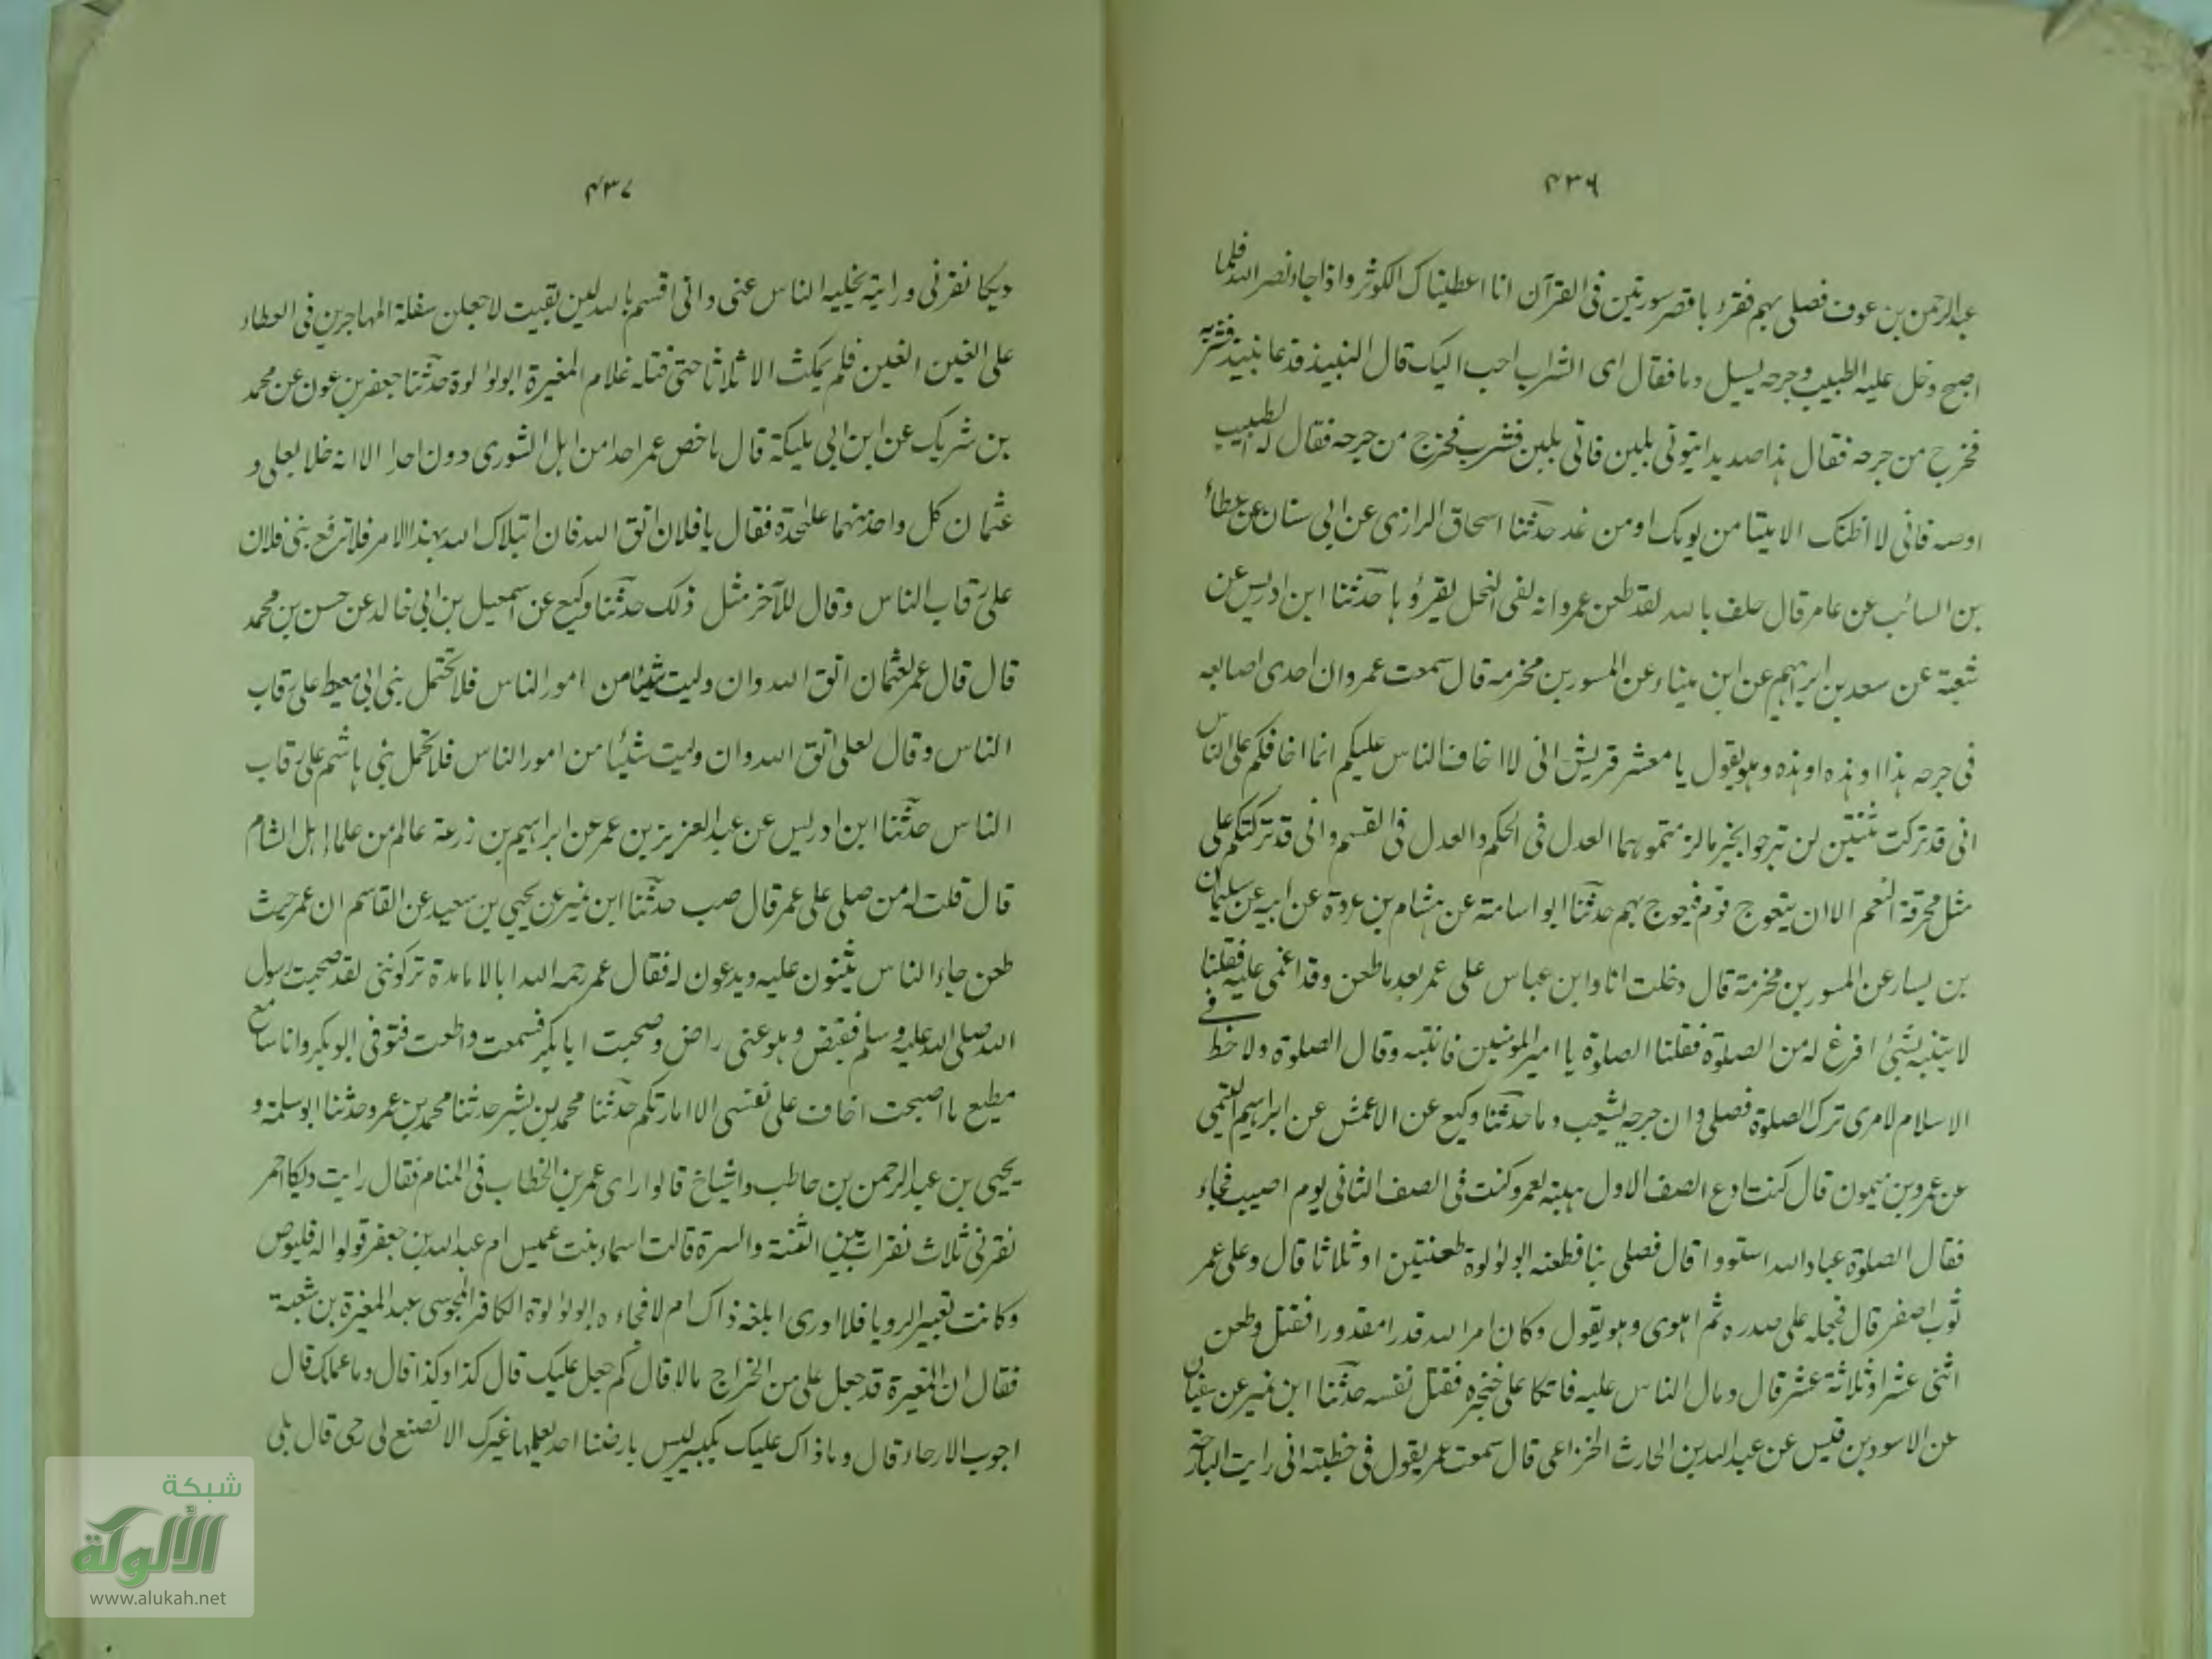 ۴۳۶
عبدالرحمن بن عوف فصلى بهم فقرء باقصر سورتين فى القرآن انا اعطيناك الكوثر واذا جاء نصر الله فلما
اصبح دخل عليه الطبيب وجرحه يسيل دما فقال اى الشراب احب اليك قال النبيذ فدعا نبيذ فشربه
فخرج من جرحه فقال هذا صديد ايتونى بلبن فاتى بلبن فشرب فخرج من جرحه فقال له الطبيب
اوصه فانى لا اظنك الا ميتا من يومك او من غد حدثنا اسحاق الرازى عن ابى سنان عن عطاء
بن السائب عن عامر قال حلف بالله لقد طعن عمر وانه لفى النحل يقرؤها حدثنا ابن ادريس عن
شعبة عن سعد بن ابراهيم عن ابن ميناء عن المسور بن مخرمه قال سمعت عمر وان احدى اصابعه
فى جرحه هذا او هذه او هذه وهو يقول يا معشر قريش انى لا اخاف الناس عليكم انما اخافكم على الناس
انى قد تركت ثنتين لن تبرحوا بخير ما لزمتموهما العدل فى الحكم والعدل فى القسم وانى قد تركتكم على
مثل محرفة النعم الا ان يتعوج قوم فيعوج بهم حدثنا ابو اسامة عن هشام بن عروة عن ابيه عن سليمان
بن يسار عن المسور بن مخرمة قال دخلت انا وابن عباس على عمر بعد ما طعن وقد اغمى عليه فقلنا
لا ينتبه بشئ افرغ له من الصلوة فقلنا الصلوة يا امير المومنين فانتبه وقال الصلوة ولا حظ فى
الاسلام لامرى ترك الصلوة فصلى وان جرحه ليثعب دما حدثنا وكيع عن الاعمش عن ابراهيم التيمى
عن عمرو بن ميمون قال كنت ادع الصف الاول هيبة لعمر وكنت فى الصف الثانى يوم اصيب فجاء
فقال الصلوة عباد الله استووا قال فصلى بنا فطعنه ابو لؤلوة طعنتين او ثلاثا قال وعلى عمر
ثوب اصفر قال فجمله على صدره ثم اهوى وهو يقول وكان امر الله قدرا مقدورا فقتل وطعن
اثنى عشر او ثلاثة عشر قال ومال الناس عليه فاتكا على خنجره فقتل نفسه حدثنا ابن نمير عن سفيان
عن الاسود بن قيس عن عبد الله بن الحارث الخزاعى قال سمعت عمر يقول فى خطبته انى رايت البارحة
۴۳۷
ديكا نقرنى ورايته يخليه الناس عنى وانى اقسم بالله لين بقيت لاجعلن سفلة المهاجرين فى العطاء
على الفين الفين فلم يمكث الا ثلاثا حتى قتله غلام المغيرة ابو لؤلوة حدثنا جعفر بن عون عن محمد
بن شريك عن ابن ابى مليكة قال ما خص عمر احدا من اهل الشورى دون احد الا انه خلا بعلى و
عثمان كل واحد منهما على حدة فقال يا فلان اتق الله فان ابتلاك الله بهذا الامر فلا ترفع بنى فلان
على رقاب الناس وقال للآخر مثل ذلك حدثنا وكيع عن اسمعيل بن ابى خالد عن حسن بن محمد
قال قال عمر لعثمان اتق الله وان وليت شيئا من امور الناس فلا تحتمل بنى ابى معيط على رقاب
الناس وقال لعلى اتق الله وان وليت شيئا من امور الناس فلا تحمل بنى هاشم على رقاب
الناس حدثنا ابن ادريس عن عبد العزيز بن عمر عن ابراهيم بن زرعة عالم من علماء اهل الشام
قال قلت له من صلى على عمر قال صهيب حدثنا ابن نمير عن يحيى بن سعيد عن القاسم ان عمر حيث
طعن جاء الناس يثنون عليه ويدعون له فقال عمر رحمه الله ابالامارة تزكوننى لقد صحبت رسول
الله صلى الله عليه وسلم فقبض وهو عنى راض وصحبت ابا بكر فسمعت واطعت فتوفى ابو بكر وانا سامع
مطيع ما اصبحت اخاف على نفسى الا امارتكم حدثنا محمد بن بشر حدثنا محمد بن عمرو حدثنا ابو سلمة و
يحيى بن عبد الرحمن بن حاطب واشياخ قالوا راى عمر بن الخطاب فى المنام فقال رايت ديكا احمر
نقرنى ثلاث نقرات بين الثنة والسرة قالت اسماء بنت عميس ام عبد الله بن جعفر قولوا له فليوص
وكانت تعبير الرويا فلا ادرى ابلغه ذاك ام لا فجاءه ابو لؤلوة الكافر المجوسى عبد المغيرة بن شعبة
فقال ان المغيرة قد جعل على من الخراج مالا قال كم جعل عليك قال كذا وكذا قال وما عملك قال
اجوب الارحاء قال وما ذاك عليك بكبير ليس بارضنا احد يعلمها غيرك الا تصنع لى رحى قال بلى
شبكة
الألوكة
www.alukah.net